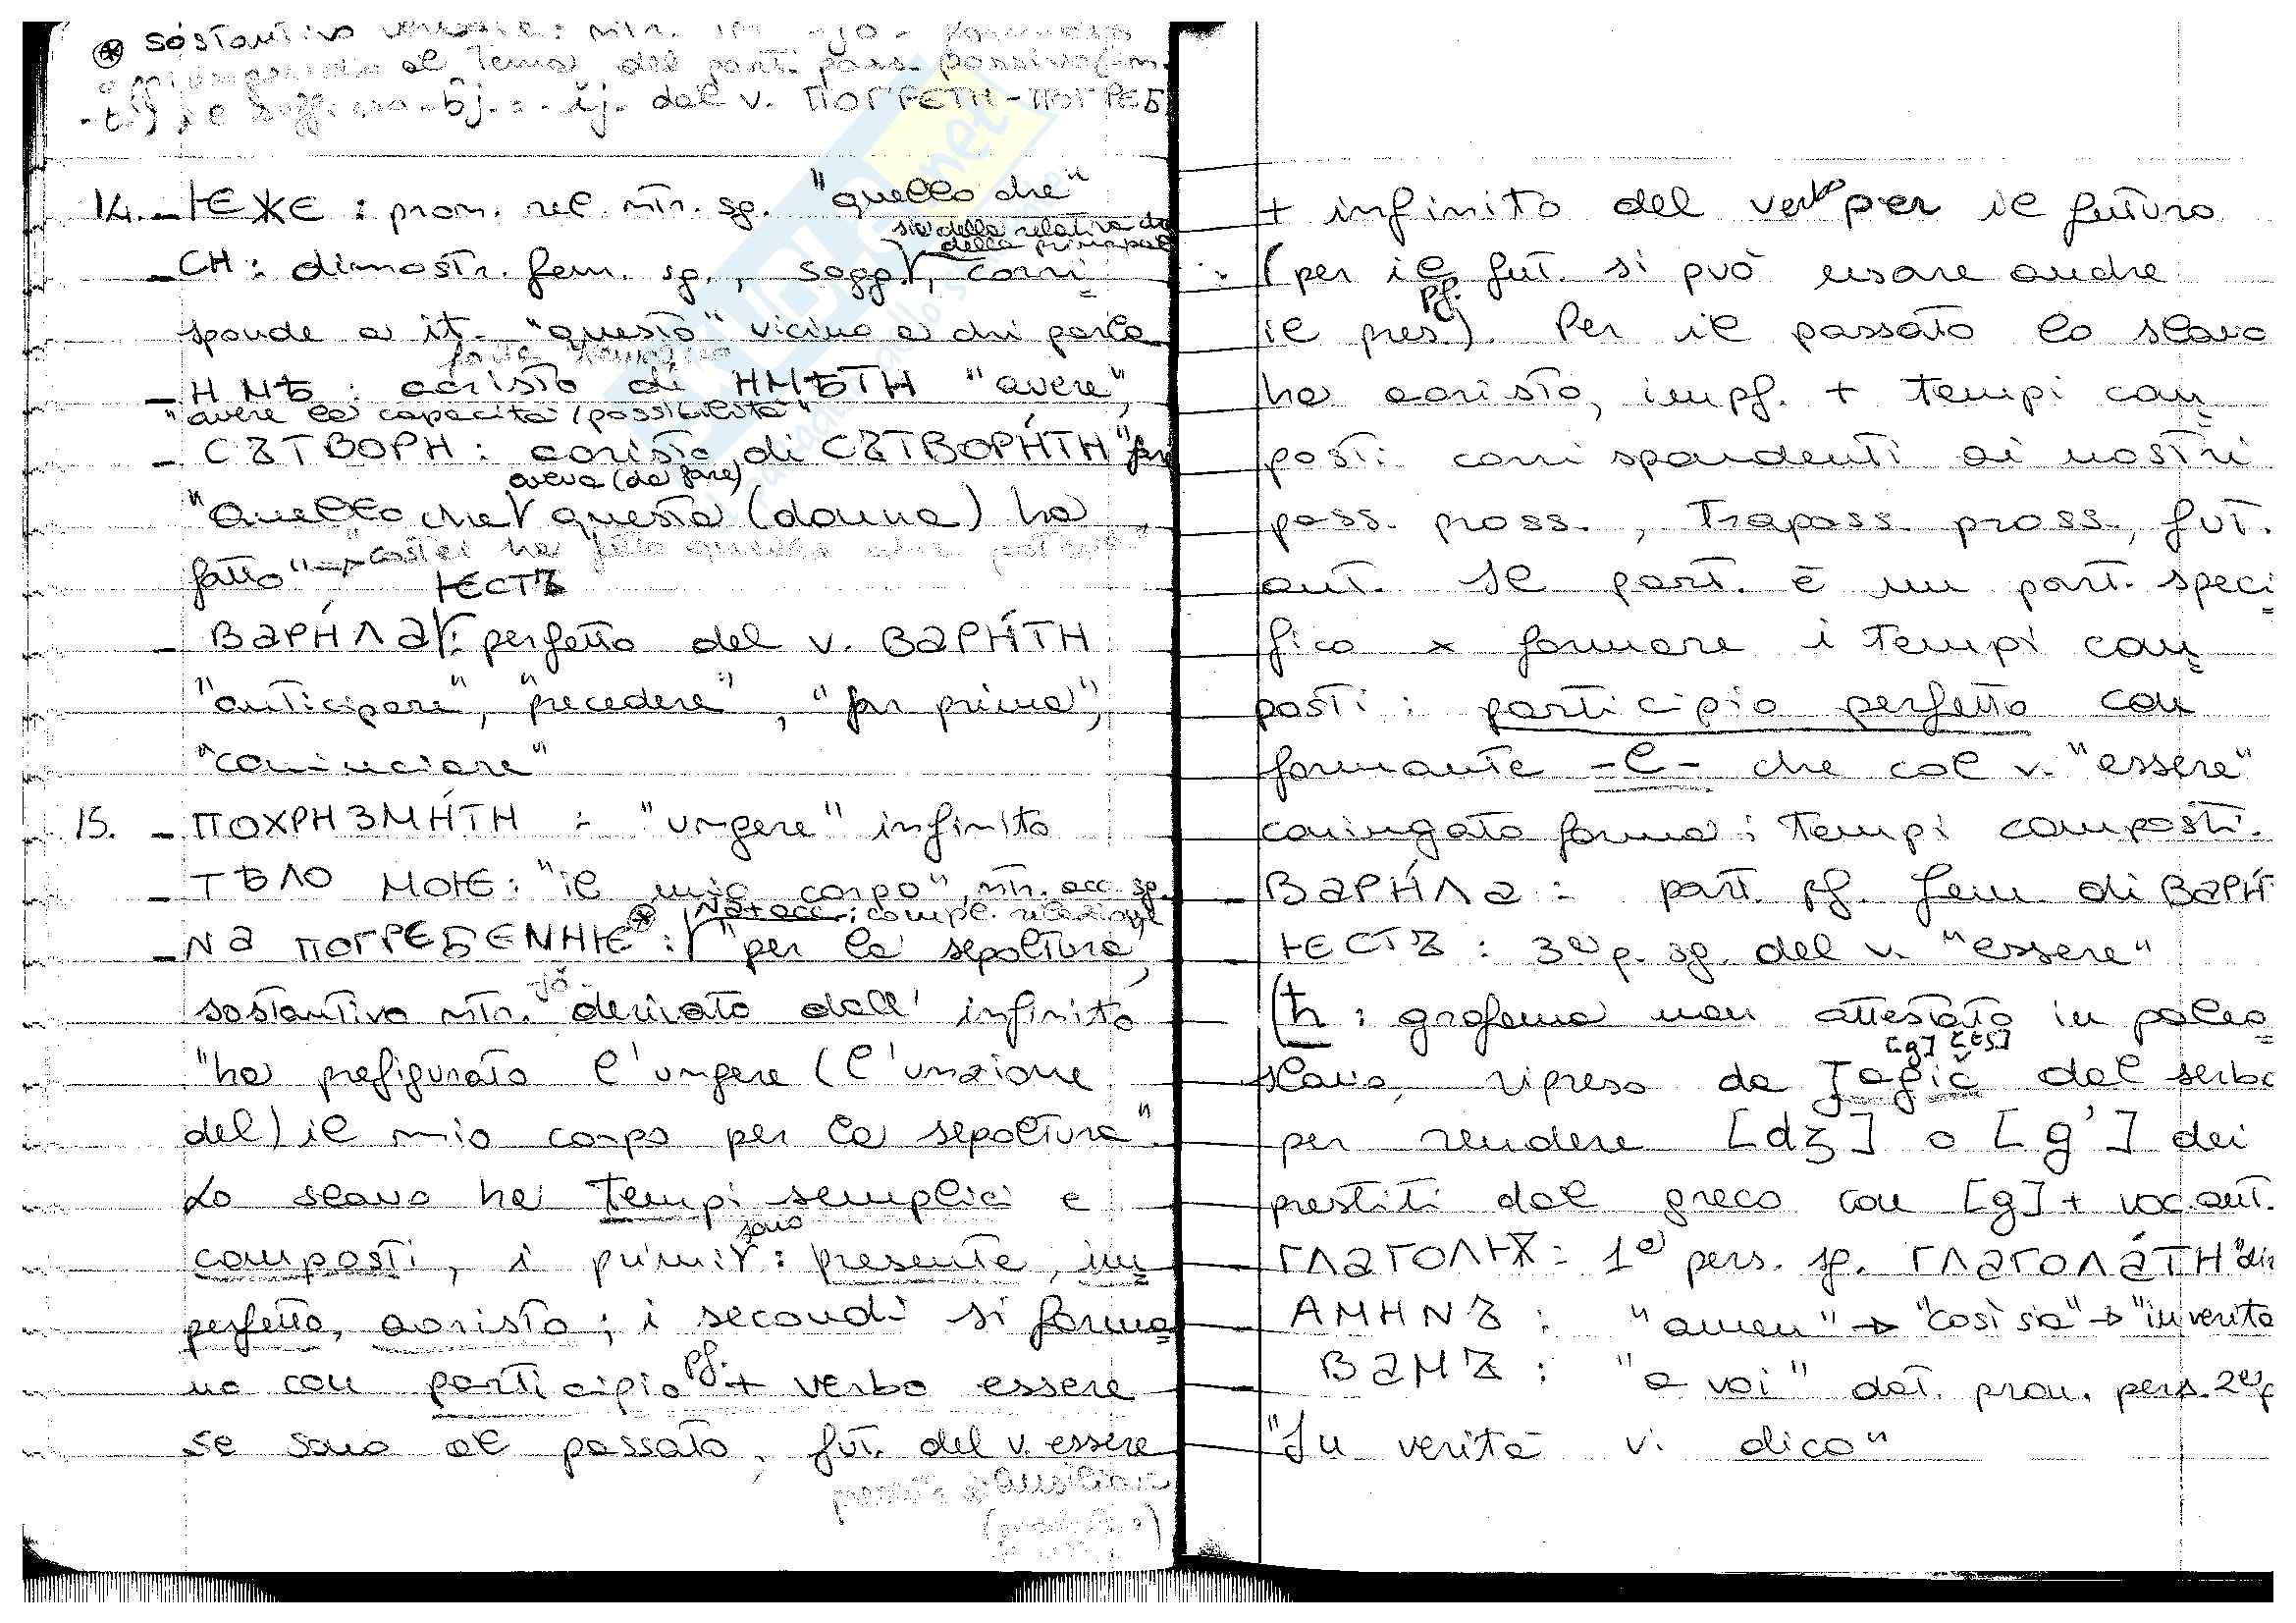 ⊛ sostantivo verbale: ntr. in -jo-
al tema del part. pass. passivo (-n-
-t-) e suff. -ьj- = -ij- dal v. ПОГРЕТН-ПОГРЕБ
14. - ѤЖЕ : pron. rel. ntr. sg. "quello che"
sia della relativa che
della principale
- СН : dimostr. fem. sg., sogg., corri=
sponde a it. "questo" vicino a chi parla
- НМѢ : aoristo di НМѢТН "avere",
"avere la capacità/possibilità"
- СЪТВОРН : aoristo di СЪТВОРН́ТН "fare
aveva (da fare)
"Quello che questa (donna) ha
fatto" → "costei ha fatto quello che poteva"
ѤСТЪ
- ВАРН́ЛА : perfetto del v. ВАРН́ТН
"anticipare", "precedere", "far prima",
"cominciare"
15. - ПОХРНЗМН́ТН : "ungere" infinito
- ТѢЛО МОѤ : "il mio corpo", ntr. acc. sg.
NA + acc.: compl. relazione
- NA ПОГРЕБЕNНѤ ⊛ : "per la sepoltura",
-jŏ-
sostantivo ntr. derivato dall' infinito
"ha prefigurato l'ungere (l'unzione
del) il mio corpo per la sepoltura".
Lo slavo ha tempi semplici e
sono
composti, i primi : presente, im=
perfetto, aoristo; i secondi si forma=
no con participio pf. + verbo essere
se sono al passato, fut. del v. essere
+ infinito del verbo per il futuro
(per il fut. si può usare anche
il pres. pf.). Per il passato lo slavo
ha aoristo, impf. + tempi com=
posti corrispondenti ai nostri
pass. pross., trapass. pross., fut.
ant. Il part. è un part. speci=
fico x formare i tempi com=
posti : participio perfetto con
formante -l- che col v. "essere"
coniugato forma i tempi composti.
- ВАРН́ЛА : part. pf. fem. di ВАРН́
- ѤСТЪ : 3ª p. sg. del v. "essere"
(ћ : grafema non attestato in paleo=
[g] [tš]
slavo, ripreso da Jagič dal serbo
per rendere [dʒ] o [g'] dei
prestiti dal greco con [g] + voc. ant.
- ГЛАГОЛѬ : 1ª pers. sg. ГЛАГОЛА́ТН "dir
- АМНNЪ : "amen" → "così sia" → "in verità
- ВАМЪ : "a voi" dat. pron. pers. 2ª p
"In verità vi dico"